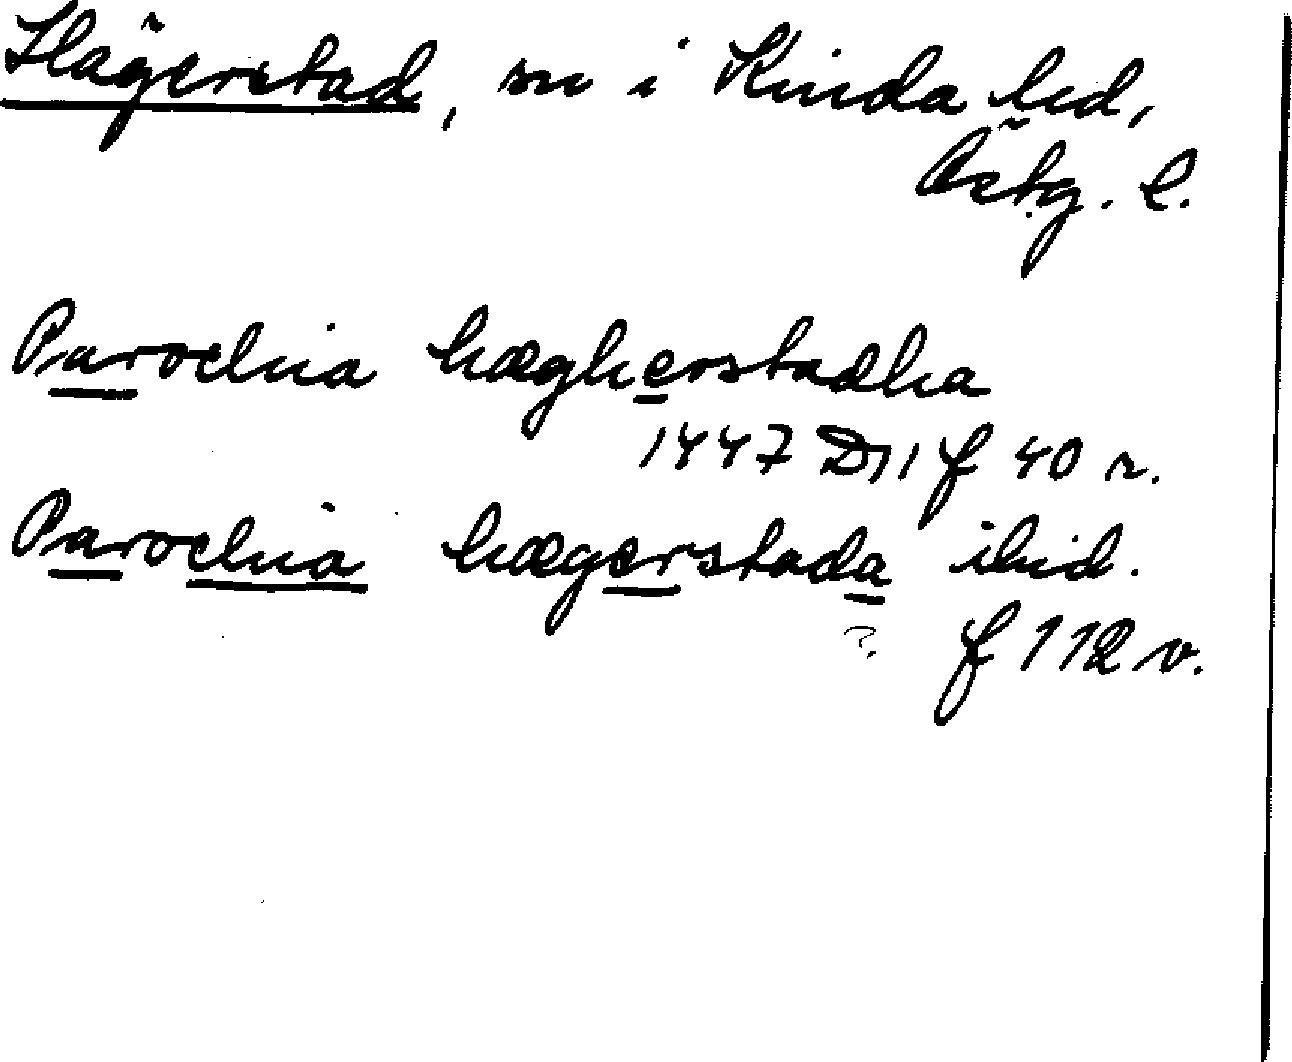 Hägerstad, sn i Kinda hd,
Östg. l.
Parochia hægherstadha
1447 D 11 f 40 r.
Parochia hægerstada ibid.
?
f 112 v.